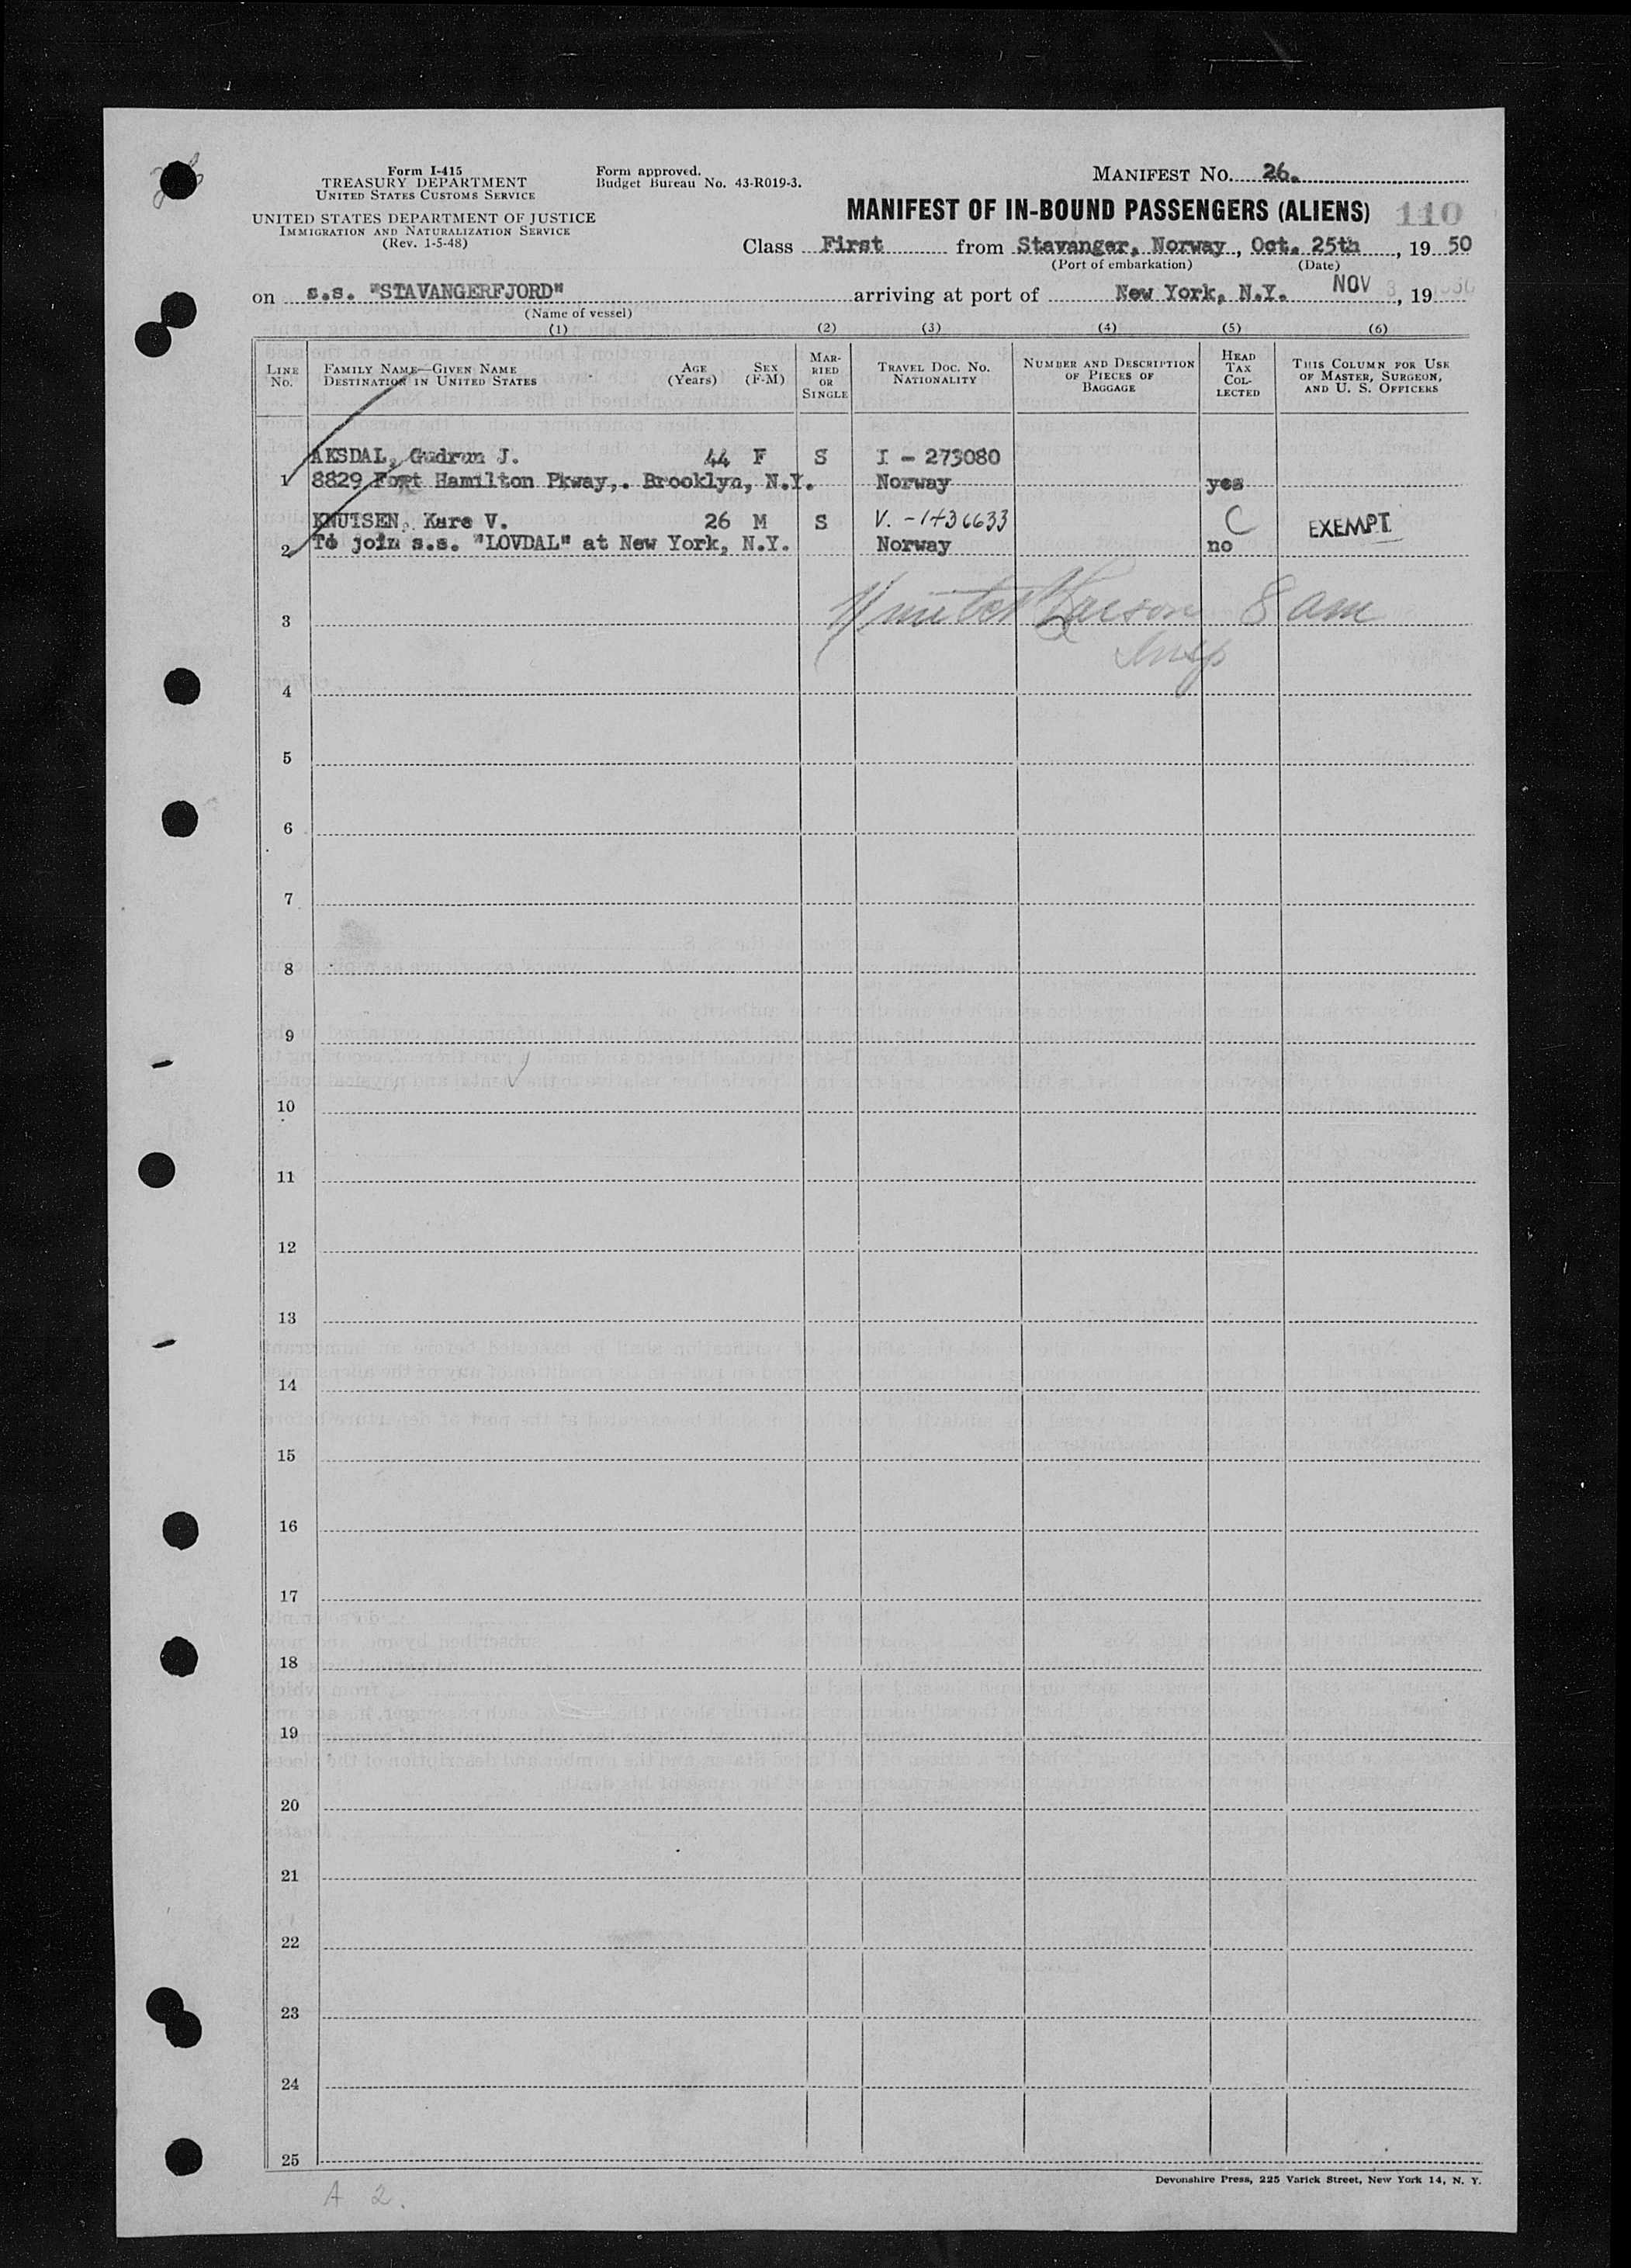 Form I-415
TREASURY DEPARTMENT
UNITED STATES CUSTOMS SERVICE
UNITED STATES DEPARTMENT OF JUSTICE
IMMIGRATION AND NATURALIZATION SERVICE
(Rev. 1-5-48)
Form approved.
Budget Bureau No. 43-R019-3.
MANIFEST NO. 26.
MANIFEST OF IN-BOUND PASSENGERS (ALIENS) 110
Class First from Stavanger, Norway, Oct. 25th, 19 50
(Port of embarkation) (Date)
on s.s. "STAVANGERFJORD" arriving at port of New York, N.Y. NOV 3 1950, 19
(Name of vessel)
(1) (2) (3) (4) (5) (6)
LINE NO.
FAMILY NAME—GIVEN NAME
DESTINATION IN UNITED STATES
AGE (YEARS)
SEX (F-M)
MARRIED OR SINGLE
TRAVEL DOC. NO.
NATIONALITY
NUMBER AND DESCRIPTION OF PIECES OF BAGGAGE
HEAD TAX COLLECTED
THIS COLUMN FOR USE OF MASTER, SURGEON, AND U. S. OFFICERS
AKSDAL, Gudrun J. 44 F S I - 273080
1 8829 Fort Hamilton Pkway,. Brooklyn, N.Y. Norway yes
KNUTSEN, Kare V. 26 M S V. -1436633 C EXEMPT
2 To join s.s. "LOVDAL" at New York, N.Y. Norway no
8 am
3
Insp
4
5
6
7
8
9
10
11
12
13
14
15
16
17
18
19
20
21
22
23
24
25
Devonshire Press, 225 Varick Street, New York 14, N. Y.
A 2.